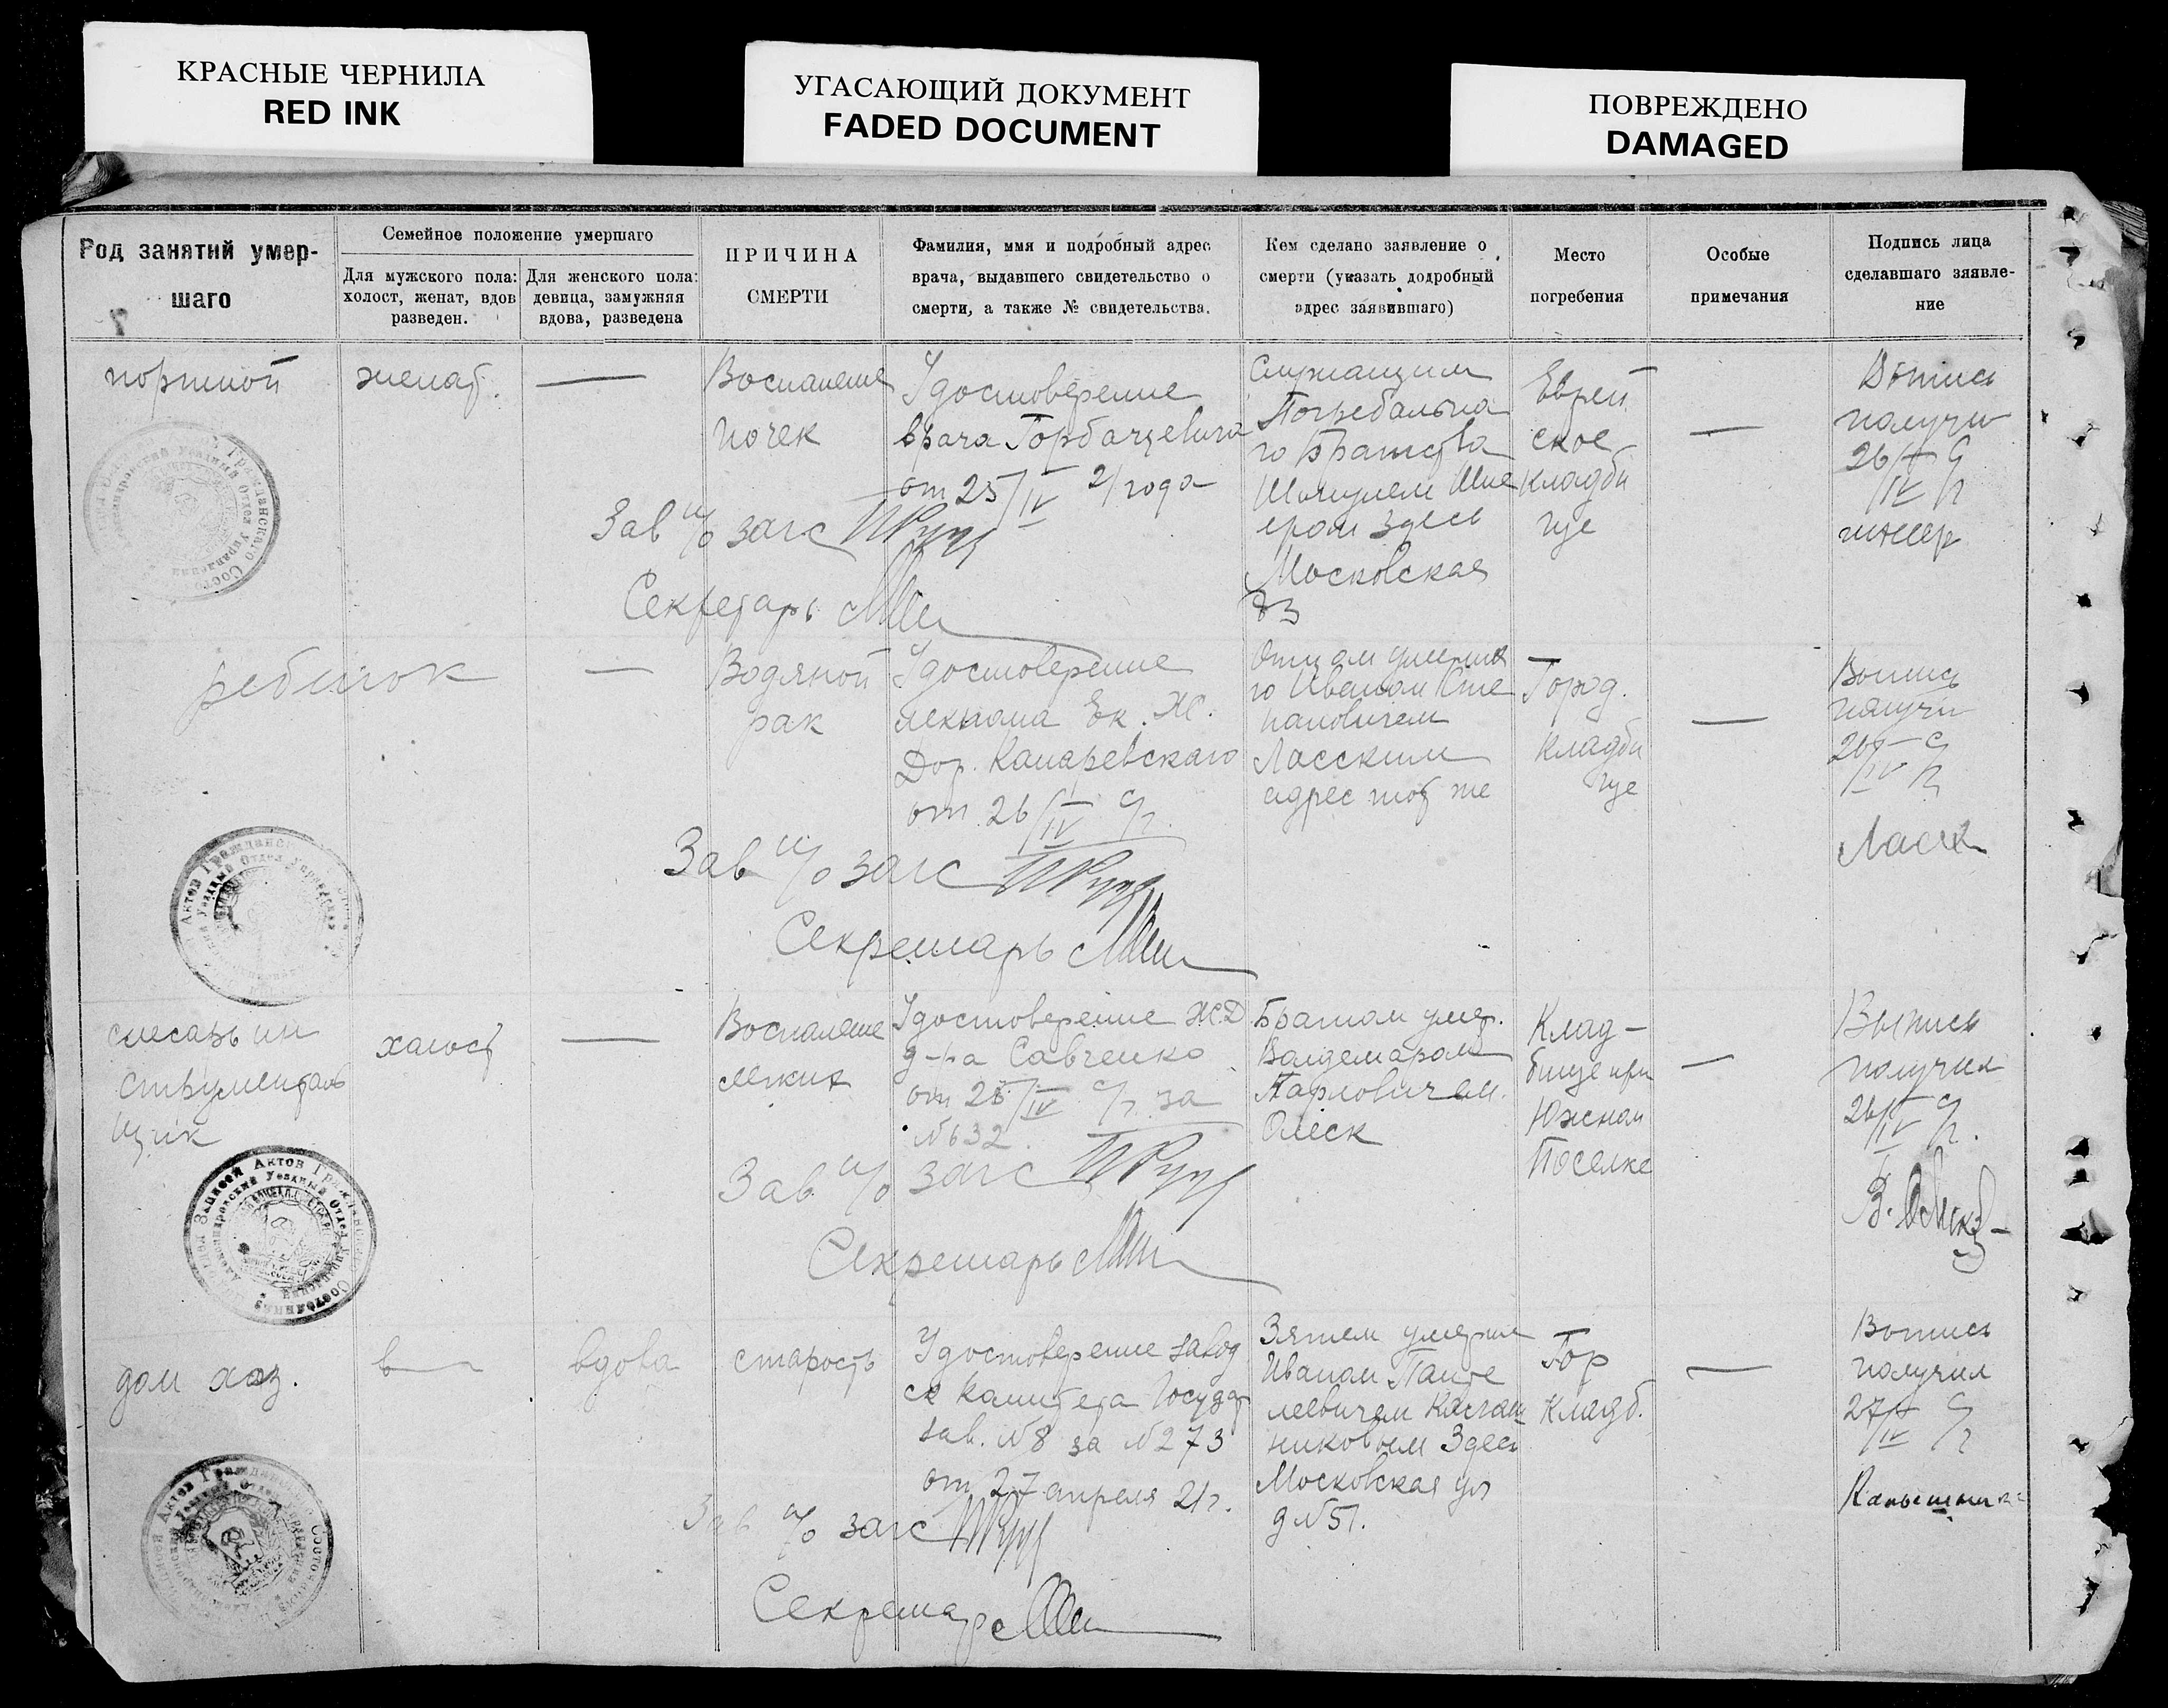 КРАСНЫЕ ЧЕРНИЛА
RED INK
УГАСАЮЩИЙ ДОКУМЕНТ
FADED DOCUMENT
ПОВРЕЖДЕНО
DAMAGED
Род занятий умер-
шаго
Семейное положение умершаго
Для мужского пола:
холост, женат, вдов
разведен.
Для женского пола:
девица, замужняя
вдова, разведена
ПРИЧИНА
СМЕРТИ
Фамилия, ммя и подробный адрес
врача, выдавшего свидетельство о
смерти, а также № свидетельства.
Кем сделано заявление о
смерти (указать додробный
адрес заявившаго)
Место
погребения
Особые
примечания
Подпись лица
сделавшаго зяявле-
ние
портной
женат.
—
Воспаление
почек
Удостоверение
врача Горбацевича
от 25/IV 21 года
Служащим
Погребально
го Братства
Шмулем
здесь
Московская
83
Еврей
ское
кладби
ще
—
Выпись
получил
26/IV с/г
Зав п/о загс
Секретарь
ребенок
—
Водяной
рак
Удостоверение
лекпома Ек. Ж.
Дор.
от 26/IV с/г.
Отцом умерша
го Иваном Сте
пановичем
Ласским
адрес тот же
Город.
кладби
ще
—
Выпись
получил
26/IV с/г
Зав п/о загс
Секретарь
слесарь ин
струменталь
щик
холост
—
Воспаление
легких
Удостоверение Ж.Д
д-ра Савченко
от 25/IV с/г. за
№632.
Братом умер.
Вольдемаром
Карловичем.
Олеск
Клад-
бище при
Южном
Поселке
—
Выпись
получил
26/IV с/г.
Зав. п/о загс
Секретарь
дом хоз.
вдова
старость
Удостоверение завод
ск комитета Государ
зав. №8 за №273
от 27 апреля 21г.
Зятем умерше
Иваном Панте
леевичем
Здесь
Московская ул
д №51.
Гор
кладб.
—
Выпись
получил
27/IV с/г
Зав п/о загс
Секретарь